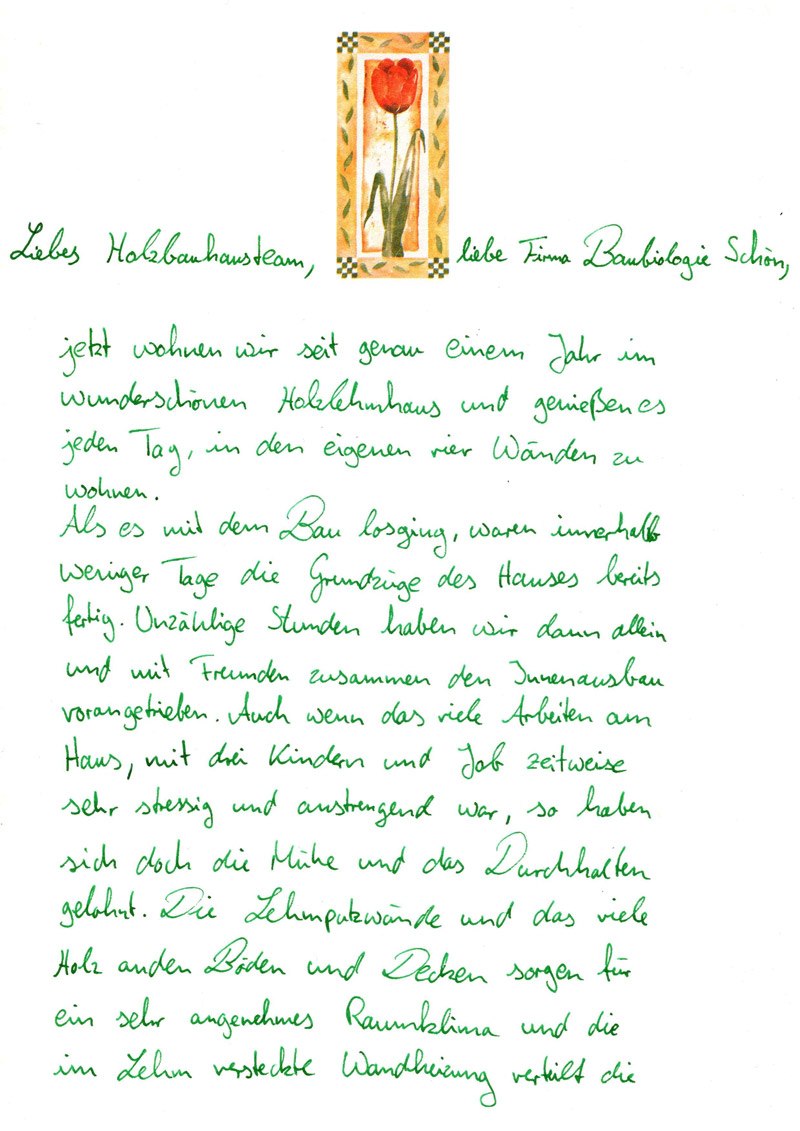 Liebes Holzbauhausteam, liebe Firma Baubiologie Schön,
jetzt wohnen wir seit genau einem Jahr im
wunderschönen Holzlehmhaus und genießen es
jeden Tag, in den eigenen vier Wänden zu
wohnen.
Als es mit dem Bau losging, waren innerhalb
weniger Tage die Grundzüge des Hauses bereits
fertig. Unzählige Stunden haben wir dann allein
und mit Freunden zusammen den Innenausbau
vorangetrieben. Auch wenn das viele Arbeiten am
Haus, mit drei Kindern und Job zeitweise
sehr stressig und anstrengend war, so haben
sich doch die Mühe und das Durchhalten
gelohnt. Die Lehmputzwände und das viele
Holz an den Böden und Decken sorgen für
ein sehr angenehmes Raumklima und die
im Lehm versteckte Wandheizung verteilt die